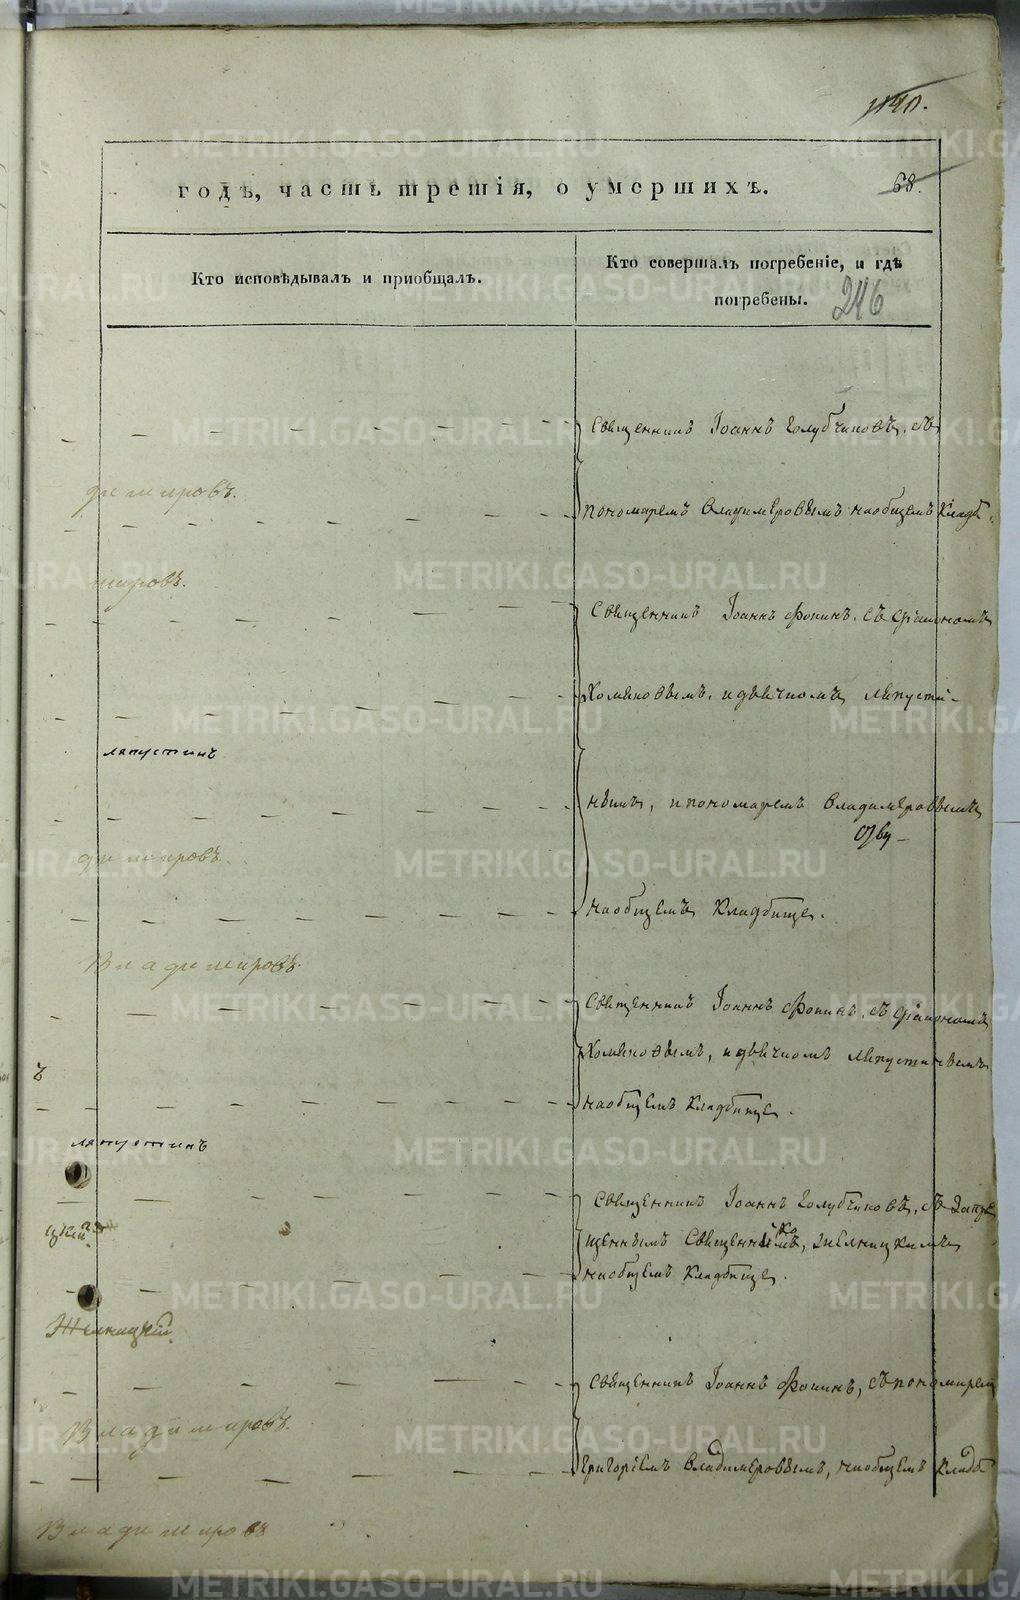 1140.
годъ, часть третія, о умершихъ.
68.
Кто исповѣдывалъ и пріобщалъ.
Кто совершалъ погребеніе, и гдѣ
погребены.
246
Священникъ Іоаннъ Голубчиковъ, съ
димировъ.
пономаремъ Владимеровымъ наобщемъ кладб
мировъ.
Священникъ Іоаннъ Фокинъ, съ діакономъ
Хомяковымъ, идьячкомъ Ляпусти-
ляпустинъ
нымъ, ипономаремъ Владимеровымъ
димировъ.
наобщемъ кладбище.
Владимировъ.
Священникъ Іоаннъ Фокинъ, съ діакономъ
Хомяковымъ, идьячкомъ Ляпустинымъ
ъ
наобщемъ кладбище.
ляпустинъ
Священникъ Іоаннъ Голубчиковъ, съ Запре
цкій
щеннымъ Священникомъ, Жѣлницкимъ
наобщемъ кладбище.
Желницкій.
Священникъ Іоаннъ Фокинъ, съпономарем
Владимировъ.
Григоріемъ Владимеровымъ, наобщемъ кладб
Владимировъ
METRIKI.GASO-URAL.RU